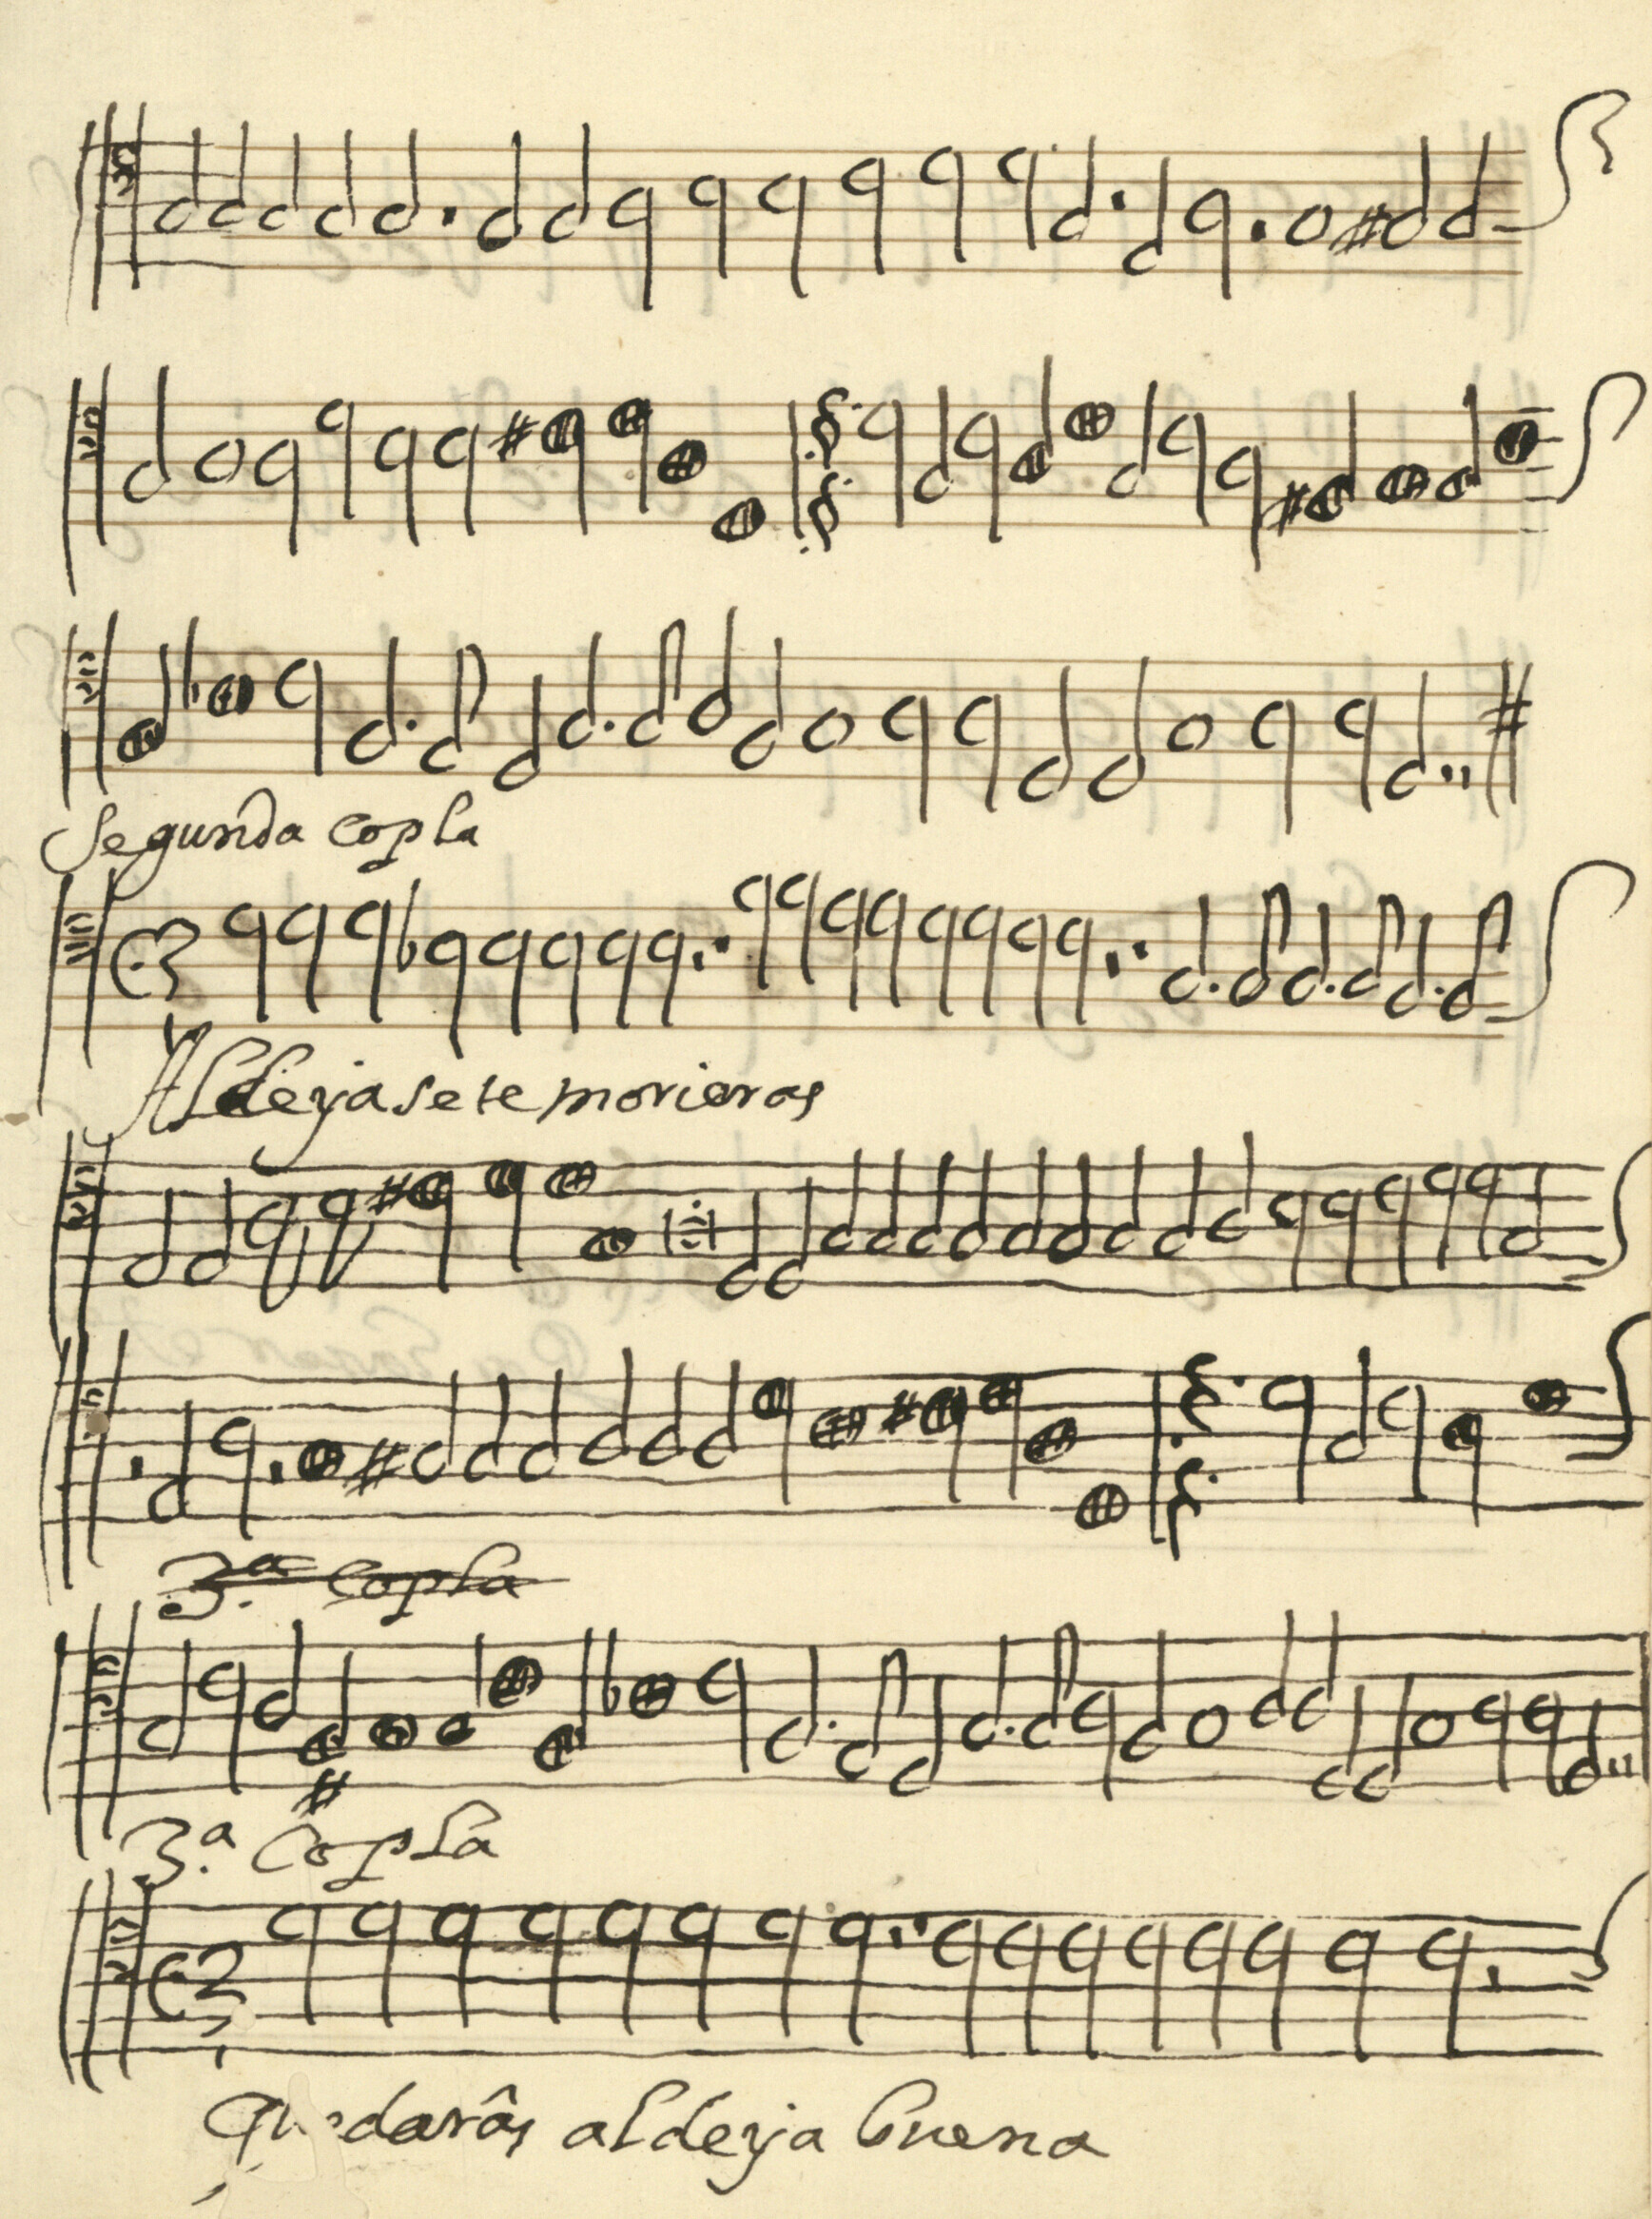 Segunda copla
Aldeyasete morieras
3.ª copla
3.ª Copla
Quedarâs aldeya buena